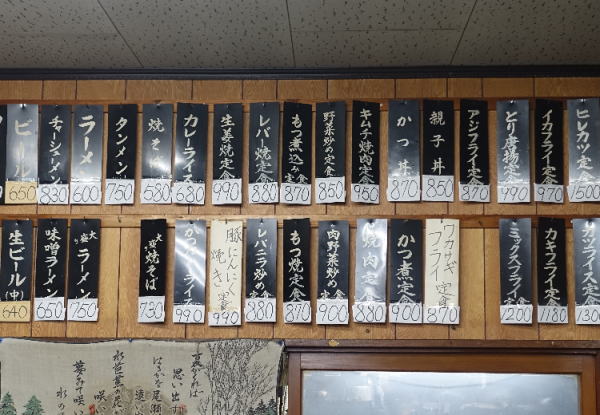 ビール 650
チャーシューメン 850
ラーメン 600
タンメン 750
焼そば 580
カレーライス 680
生姜焼定食 990
レバー焼定食 880
もつ煮込み定食 870
野菜炒め定食 850
キムチ焼肉定食 950
かつ丼 870
親子丼 850
アジフライ定食 870
とり唐揚定食 990
イカフライ定食 970
ヒレカツ定食 1500
生ビール(中) 640
味噌ラーメン 650
大盛ラーメン 750
大盛焼そば 730
かつライス 990
豚にんにく焼き定食 990
レバニラ炒め定食 880
もつ焼定食 870
肉野菜炒め定食 900
焼肉定食 880
かつ煮定食 900
ワカサギフライ定食 870
ミックスフライ定食 1200
カキフライ定食 1180
思い出す
水の